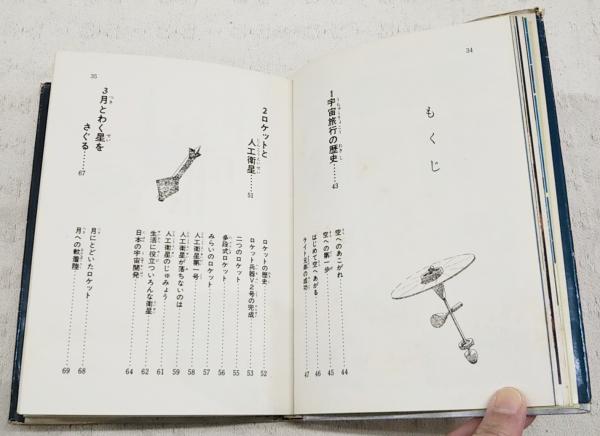 34
もくじ
1宇宙旅行の歴史……43
空へのあこがれ……44
空への第一歩……45
はじめて空へあがる……46
ライト兄弟の成功……47
2ロケットと
人工衛星……51
ロケットの歴史……52
ロケット兵器V2号の完成……53
二つのロケット……55
多段式ロケット……56
みらいのロケット……57
人工衛星第一号……58
人工衛星が落ちないのは……59
人工衛星のじゅみょう……61
生活に役立ついろんな衛星……62
日本の宇宙開発……64
35
3月とわく星を
さぐる……67
月にとどいたロケット……68
月への軟着陸……69